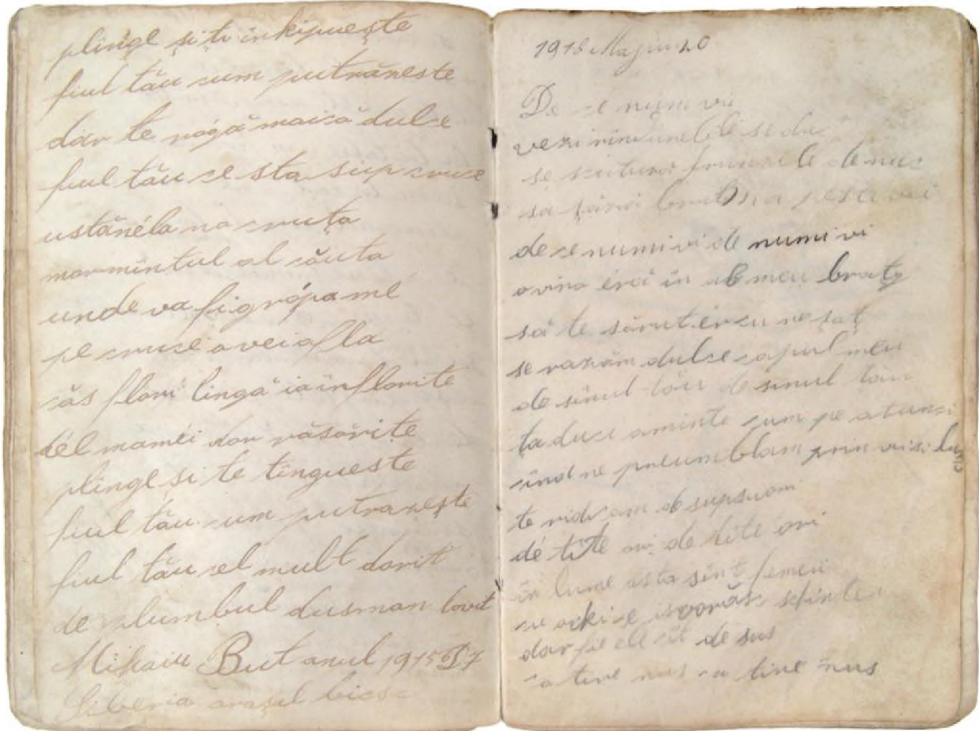 plînge și ti inkipuește
fiul tău cum putrăneste
dar te rógă maică dulce
fiul tău ce sta sup cruce
ustănéla na cruța
mormîntul al căuta
unde va fi grópa mé
pe cruce o vei afla
căs flori lîngă ia inflorite
dél maméi dor răsărite
plînge și te tîngueste
fiul tău cum putrazește
fiul tău cel mult dorit
de plumbul dusman lovit
Mihaiu But anul 1915
Siberia orașul
1918 Majiu 20
De ce nu mi vii
vezi rîndunelele se duc
se scutură frunzele de nuc
sa bruma peste vii
de ce numi vi de numi vi
o vino éră in al meu braț
să te sărut cu nesaț
se razăm dulce capul meu
de sinul tău de sinul tău
ță duci aminte cum pe atunci
cînd ne preumblam prin
te ridicam de supsuori
dé tîte ori de tîte ori
in lume asta sint femei
cu ochi ce isvorăsc scîntei
dar fie cît de sus
ca tine nus ca tine nus